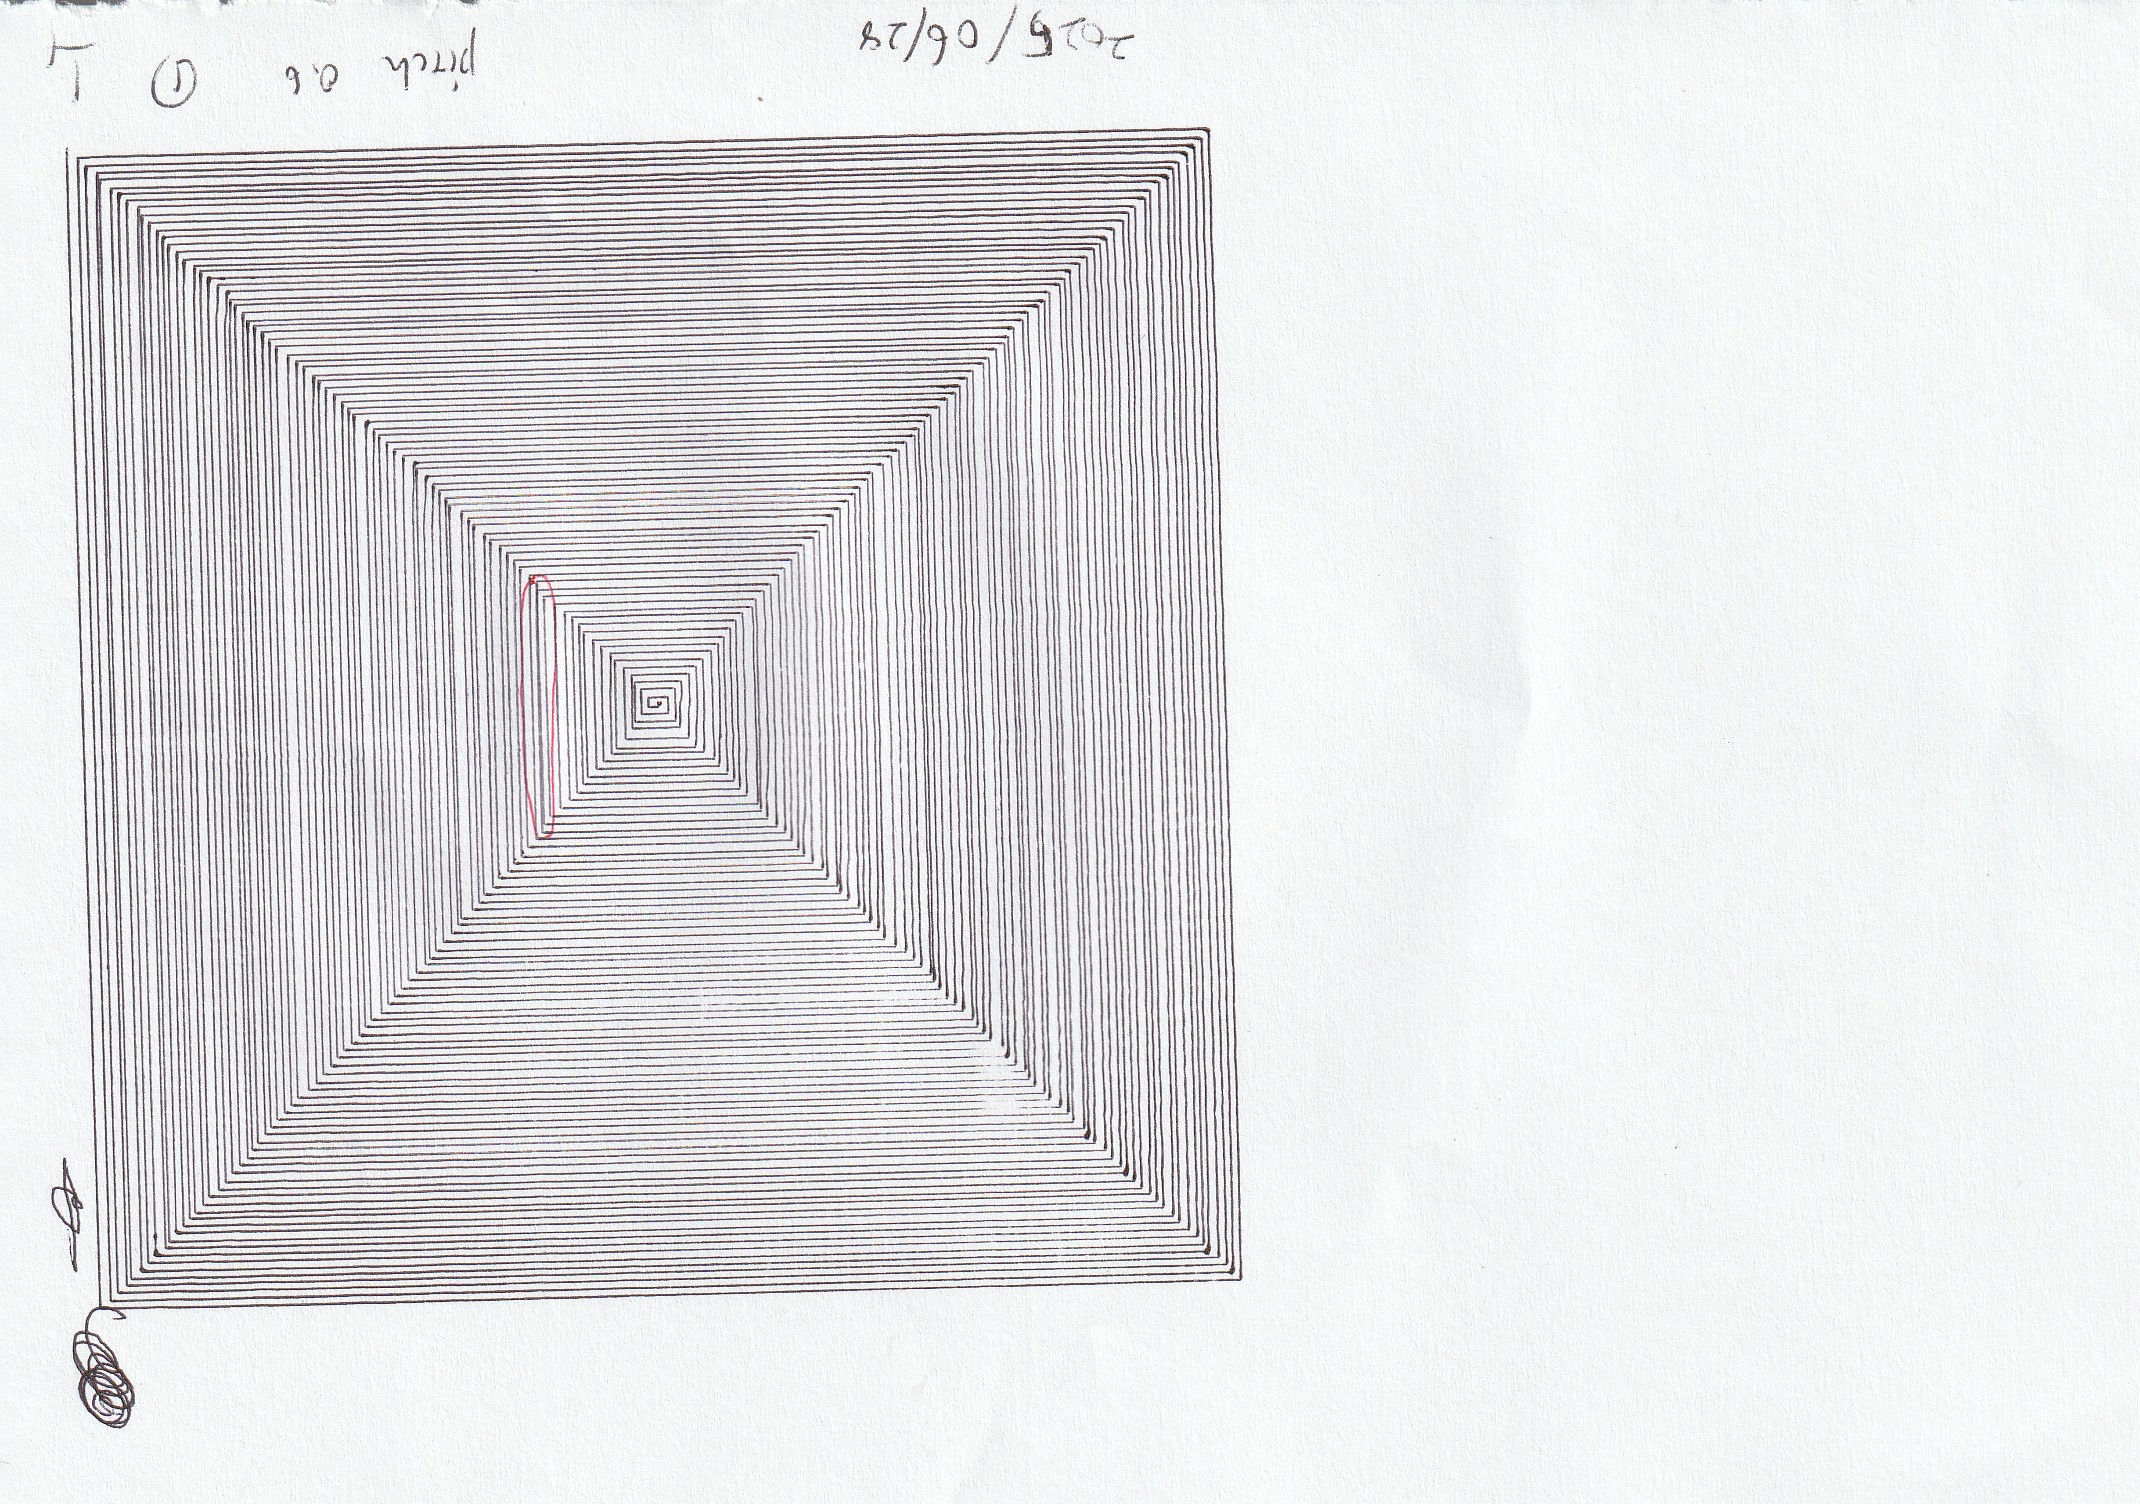 2025/06/28
pitch 0.6 ① T